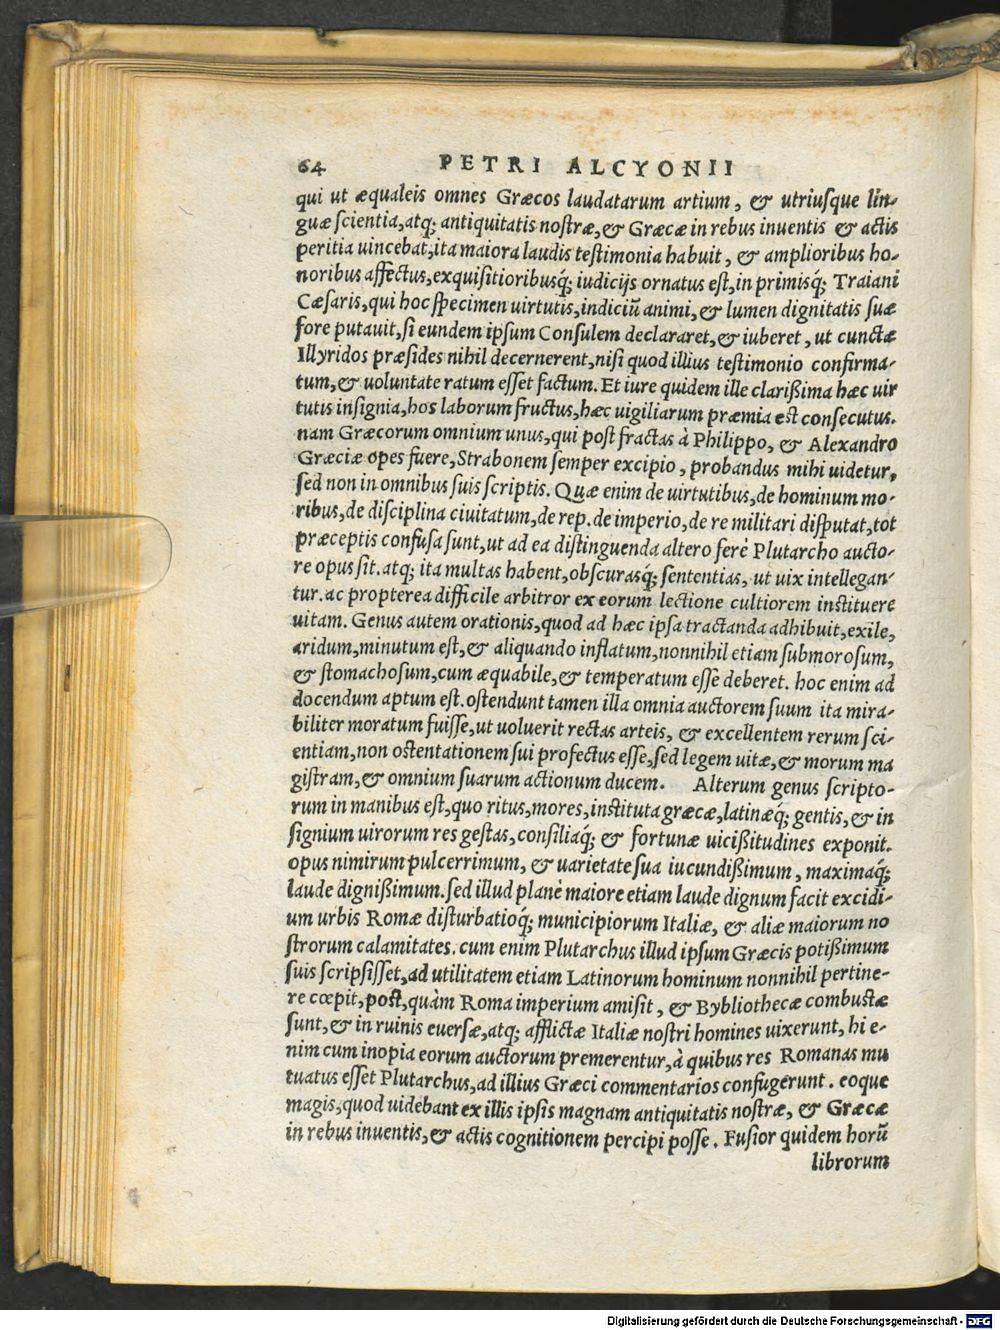 64 PETRI ALCYONII
qui ut æqualeis omnes Græcos laudatarum artium, & utriusque lin-
guæ scientia, atq; antiquitatis nostræ, & Græcæ in rebus inuentis & actis
peritia uincebat; ita maiora laudis testimonia habuit, & amplioribus ho-
noribus affectus, exquisitioribusq́; iudicijs ornatus est, in primisq́; Traiani
Cæsaris, qui hoc specimen uirtutis, indiciũ animi, & lumen dignitatis suæ
fore putauit, si eundem ipsum Consulem declararet, & iuberet, ut cunctæ
Illyridos præsides nihil decernerent, nisi quod illius testimonio confirma-
tum, & uoluntate ratum esset factum. Et iure quidem ille clarißima hæc uir
tutis insignia, hos laborum fructus, hæc uigiliarum præmia est consecutus.
nam Græcorum omnium unus, qui post fractas à Philippo, & Alexandro
Græciæ opes fuere, Strabonem semper excipio, probandus mihi uidetur,
sed non in omnibus suis scriptis. Quæ enim de uirtutibus, de hominum mo-
ribus, de disciplina ciuitatum, de rep. de imperio, de re militari disputat, tot
præceptis confusa sunt, ut ad ea distinguenda altero ferè Plutarcho aucto-
re opus sit. atq; ita multas habent, obscurasq́; sententias, ut uix intellegan-
tur. ac propterea difficile arbitror ex eorum lectione cultiorem instituere
uitam. Genus autem orationis, quod ad hæc ipsa tractanda adhibuit, exile,
aridum, minutum est, & aliquando inflatum, nonnihil etiam submorosum,
& stomachosum, cum æquabile, & temperatum esse deberet. hoc enim ad
docendum aptum est. ostendunt tamen illa omnia auctorem suum ita mira-
biliter moratum fuisse, ut uoluerit rectas arteis, & excellentem rerum sci-
entiam, non ostentationem sui profectus esse, sed legem uitæ, & morum ma
gistram, & omnium suarum actionum ducem. Alterum genus scripto-
rum in manibus est, quo ritus, mores, instituta græcæ, latinæq́; gentis, & in
signium uirorum res gestas, consiliaq́; & fortunæ uicißitudines exponit.
opus nimirum pulcerrimum, & uarietate sua iucundißimum, maximaq́;
laude dignißimum. sed illud planè maiore etiam laude dignum facit excidi-
um urbis Romæ disturbatioq́; municipiorum Italiæ, & aliæ maiorum no
strorum calamitates. cum enim Plutarchus illud ipsum Græcis potißimum
suis scripsisset, ad utilitatem etiam Latinorum hominum nonnihil pertine-
re cœpit, post, quàm Roma imperium amisit, & Bybliothecæ combustæ
sunt, & in ruinis euersæ, atq; afflictæ Italiæ nostri homines uixerunt, hi e-
nim cum inopia eorum auctorum premerentur, à quibus res Romanas mu
tuatus esset Plutarchus, ad illius Græci commentarios confugerunt. eoque
magis, quod uidebant ex illis ipsis magnam antiquitatis nostræ, & Græcæ
in rebus inuentis, & actis cognitionem percipi posse. Fusior quidem horũ
librorum
Digitalisierung gefördert durch die Deutsche Forschungsgemeinschaft - DFG